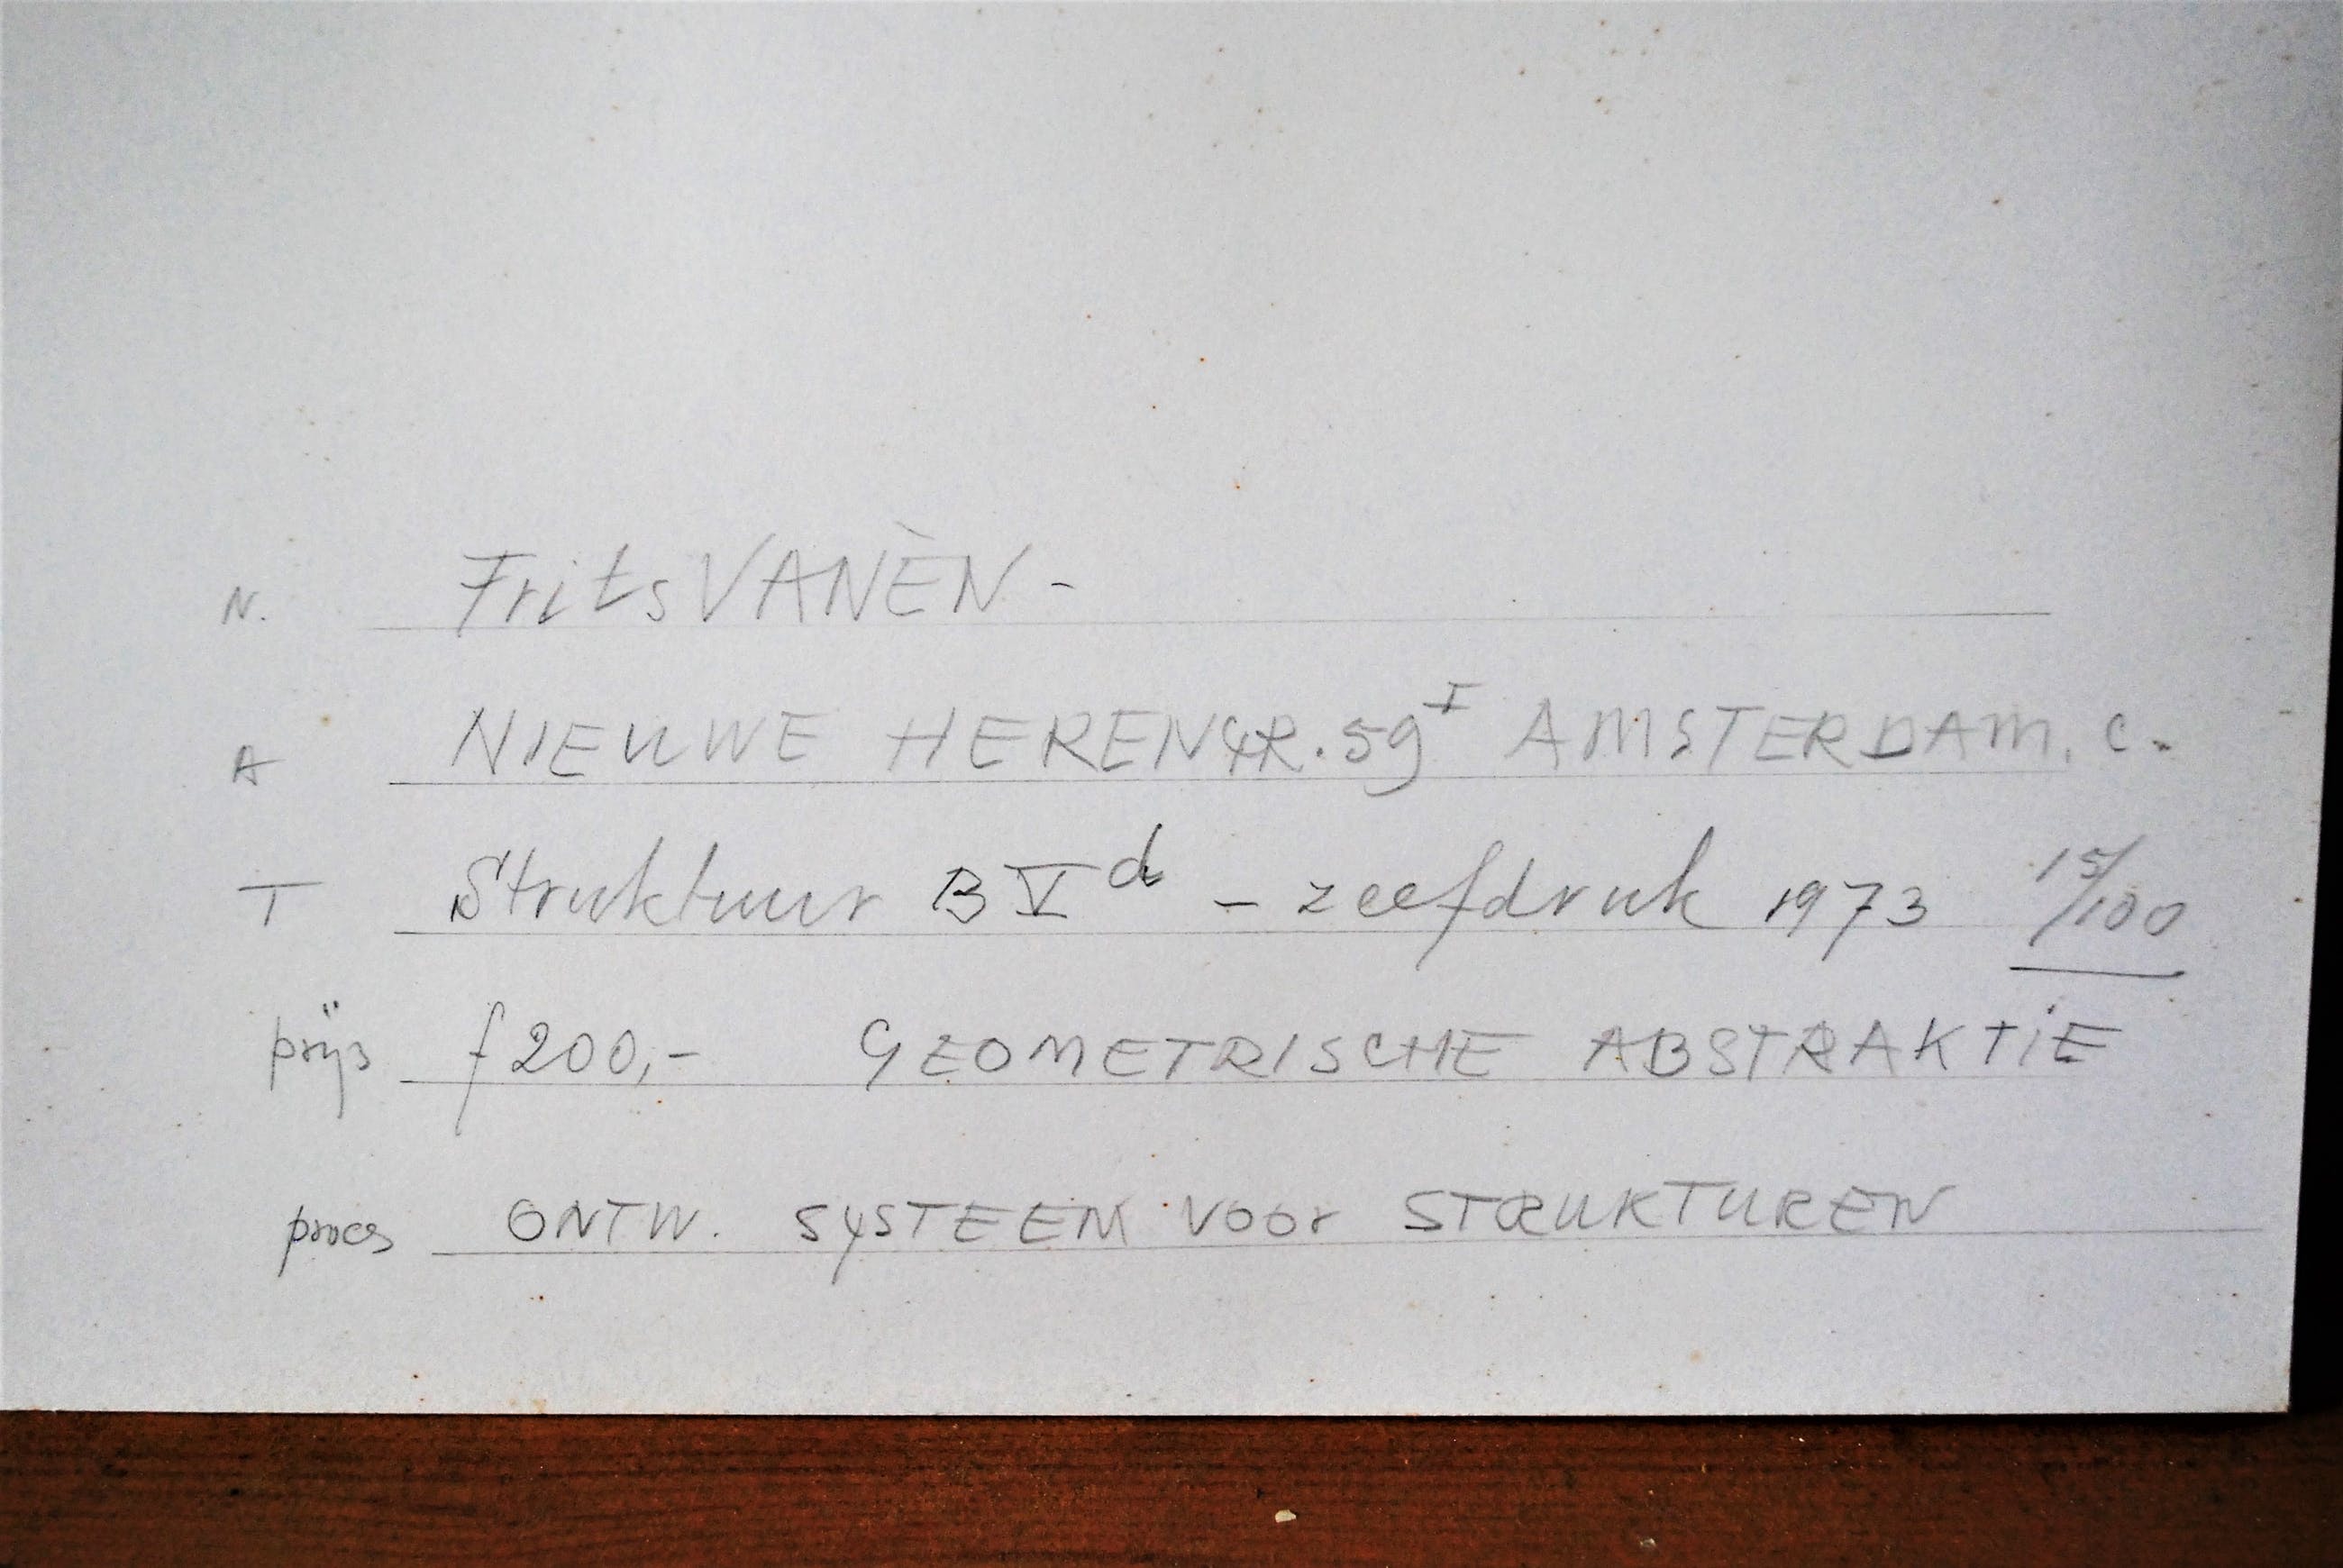 N. Frits VANÈN -
A NIEUWE HERENGR. 59 I AMSTERDAM. C.
T Struktuur B V d - zeefdruk 1973 15/100
prijs f 200,- GEOMETRISCHE ABSTRAKTIE
proces ONTW. SYSTEEM VOOr STRUKTUREN